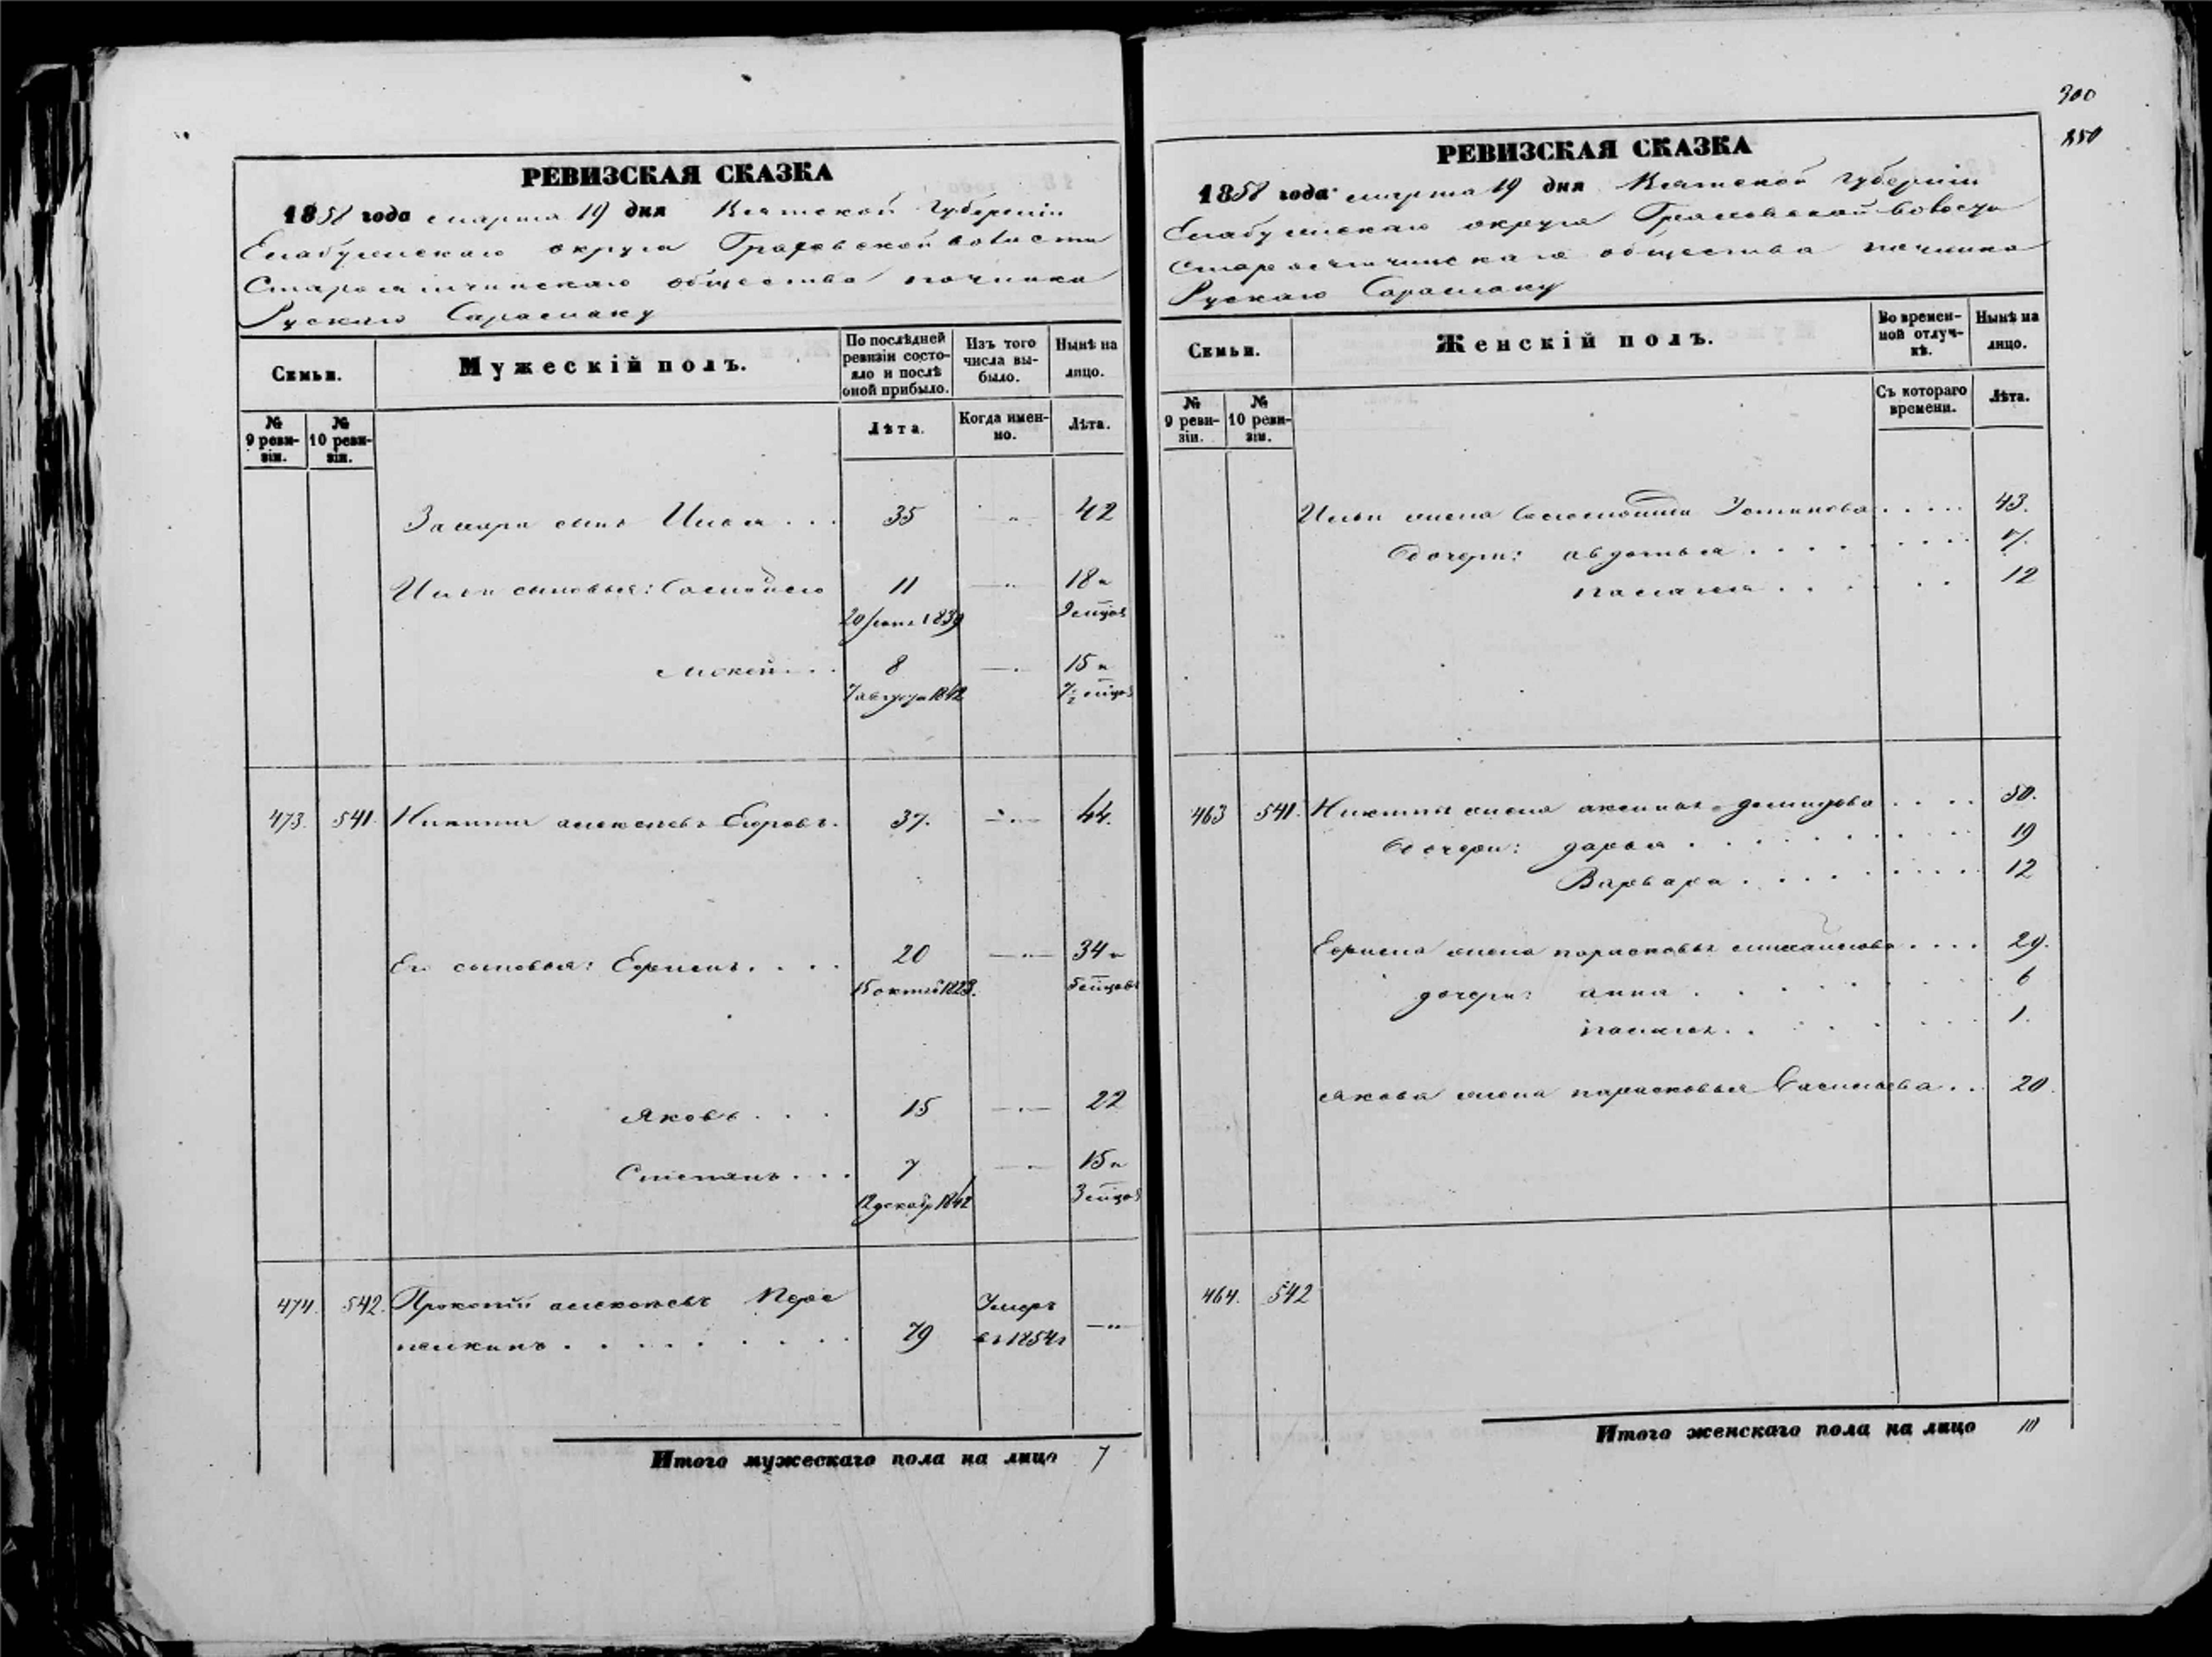 РЕВИЗСКАЯ СКАЗКА
1858 года марта 19 дня Вятской Губернiи
Елабужскаго округа Граховской волости
общества починка
Рускаго Сарамаку
Семьи.
Мужескiй полъ.
По послѣдней ревизiи состояло и послѣ оной прибыло.
Изъ того числа выбыло.
Нынѣ на лицо.
№ 9 ревизiи.
№ 10 ревизiи.
Лѣта.
Когда именно.
Лѣта.
сынъ Илья . . . 35 42
Ильи сыновья: 11 18 и
20 1839 9 мцов
Мокей . . . 8 15 и
7 августа 1842 7½ мцов
473. 541. Никита Алексѣевъ Егоровъ. 37. 44.
Его сыновья: Ефимъ . . . . 20 34 и
15 октяб 1823. 5 мцовъ
Яковъ . . . 15 22
Степанъ . . . 7 15 и
12 декабр 1842 3 мцов
474. 542. Прокопiй Алексѣевъ Пере
пелкинъ . . . . . . . . 79 Умеръ въ 1854 г
Итого мужескаго пола на лицо 7
300
850
РЕВИЗСКАЯ СКАЗКА
1858 года марта 19 дня Вятской Губернiи
Елабужскаго округа Граховской
общества починка
Рускаго Сарамаку
Семьи.
Женскiй полъ.
Во временной отлучкѣ.
Нынѣ на лицо.
№ 9 ревизiи.
№ 10 ревизiи.
Съ котораго времени.
Лѣта.
Ильи жена Устинова . . . . . 43.
Дочери: Авдотья . . . . . . . .
Палагея . . . . . . 12
463 541. Никиты жена Аксинья Демидова . . . . 50.
Дочери: Дарья . . . . . . . . 19
Варвара . . . . . . . . . 12
Ефима жена Парасковья Михайлова . . . . 29.
дочери: Анна . . . . . . . 6
Палагея . . . . . . . 1.
Якова жена Парасковья Васильева . . 20.
464. 542
Итого женскаго пола на лицо 10